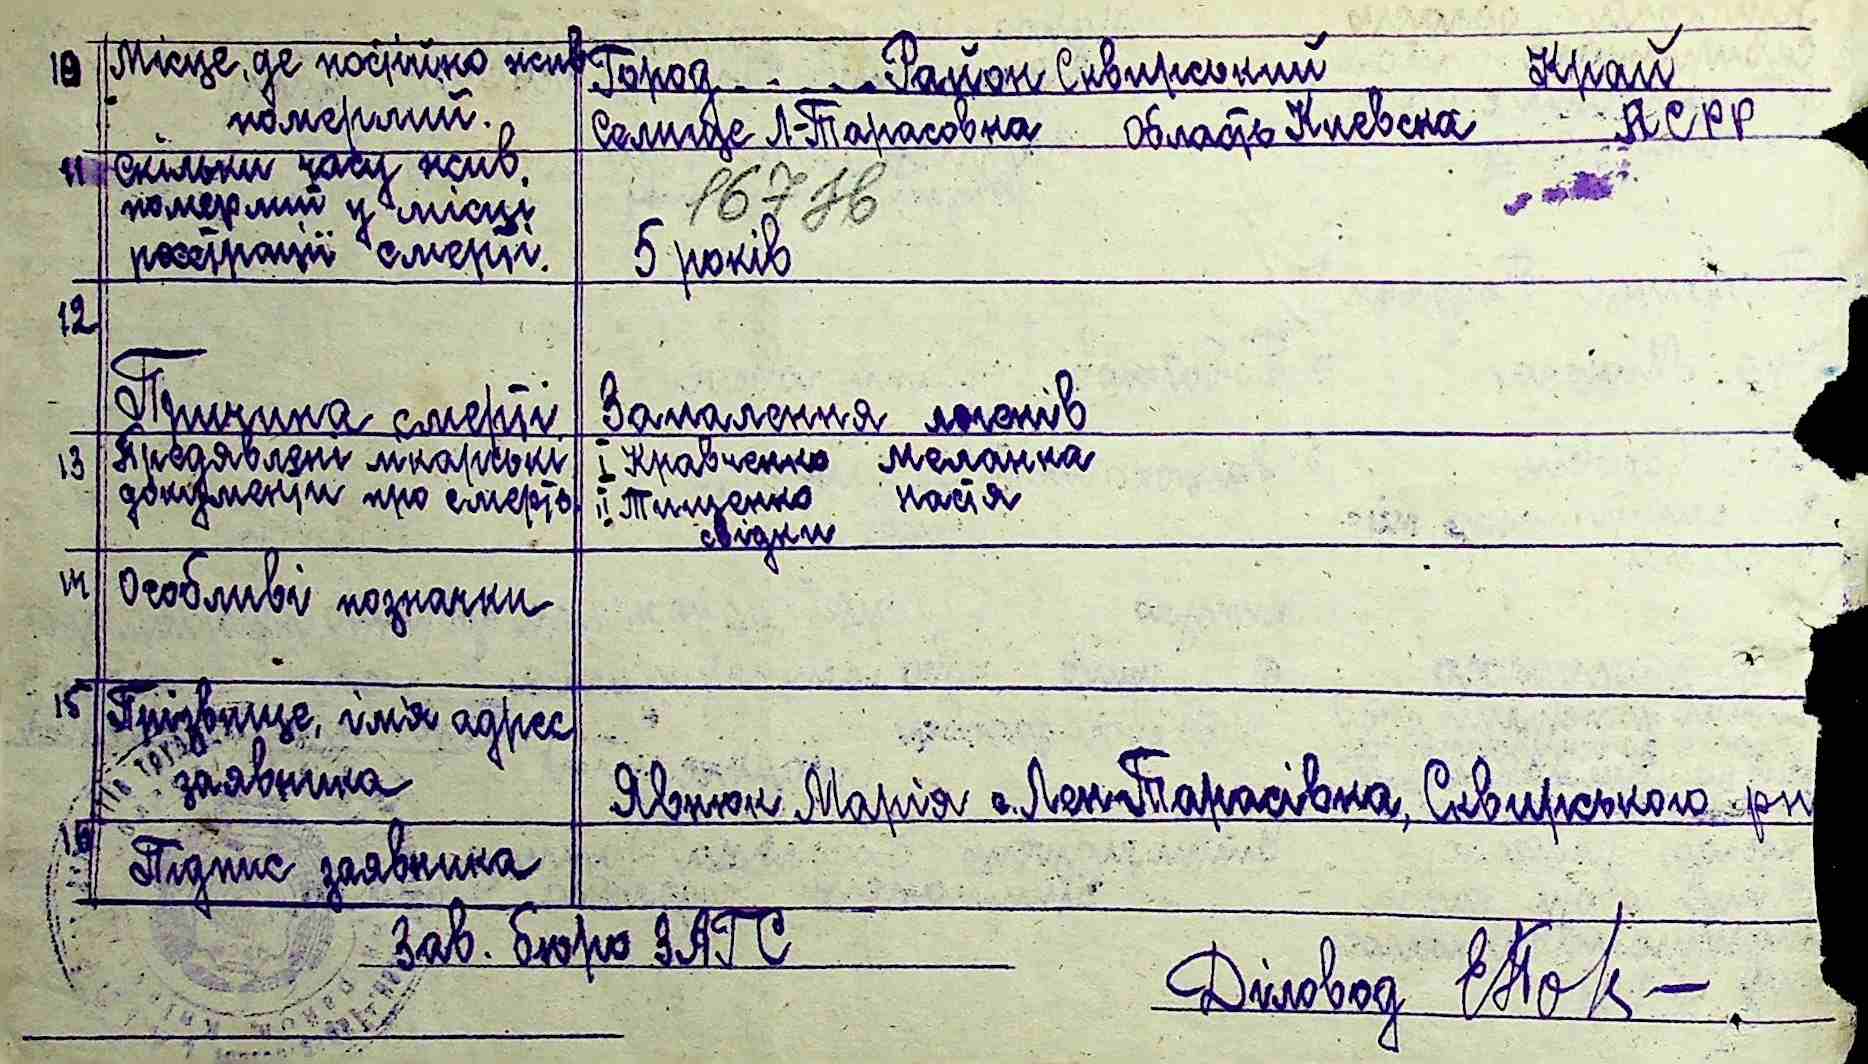 10 Місце, де постійно жив Город . . . . Район Сквирський Край
померлий. Селище Л-Тарасовка Область Киевска АСРР
11 скільки часу жив,
померлий у місці 167 зв
реєстрації смерті. 5 років
12
Причина смерті Запалення легенів
13 Предявлені лікарські I Кравченко Меланка
документи про смерть II Тищенко Настя
свідки
14 Особливі позначки
15 Прізвище, ім'я адрес
заявника Явнюк Марія с. Лен-Тарасівка, Сквирського рн
16 Підпис заявника
Зав. бюро ЗАГС
Діловод